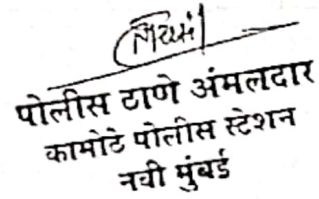 पोलीस ठाणे अंमलदार
कामोटे पोलीस स्टेशन
नवी मुंबई